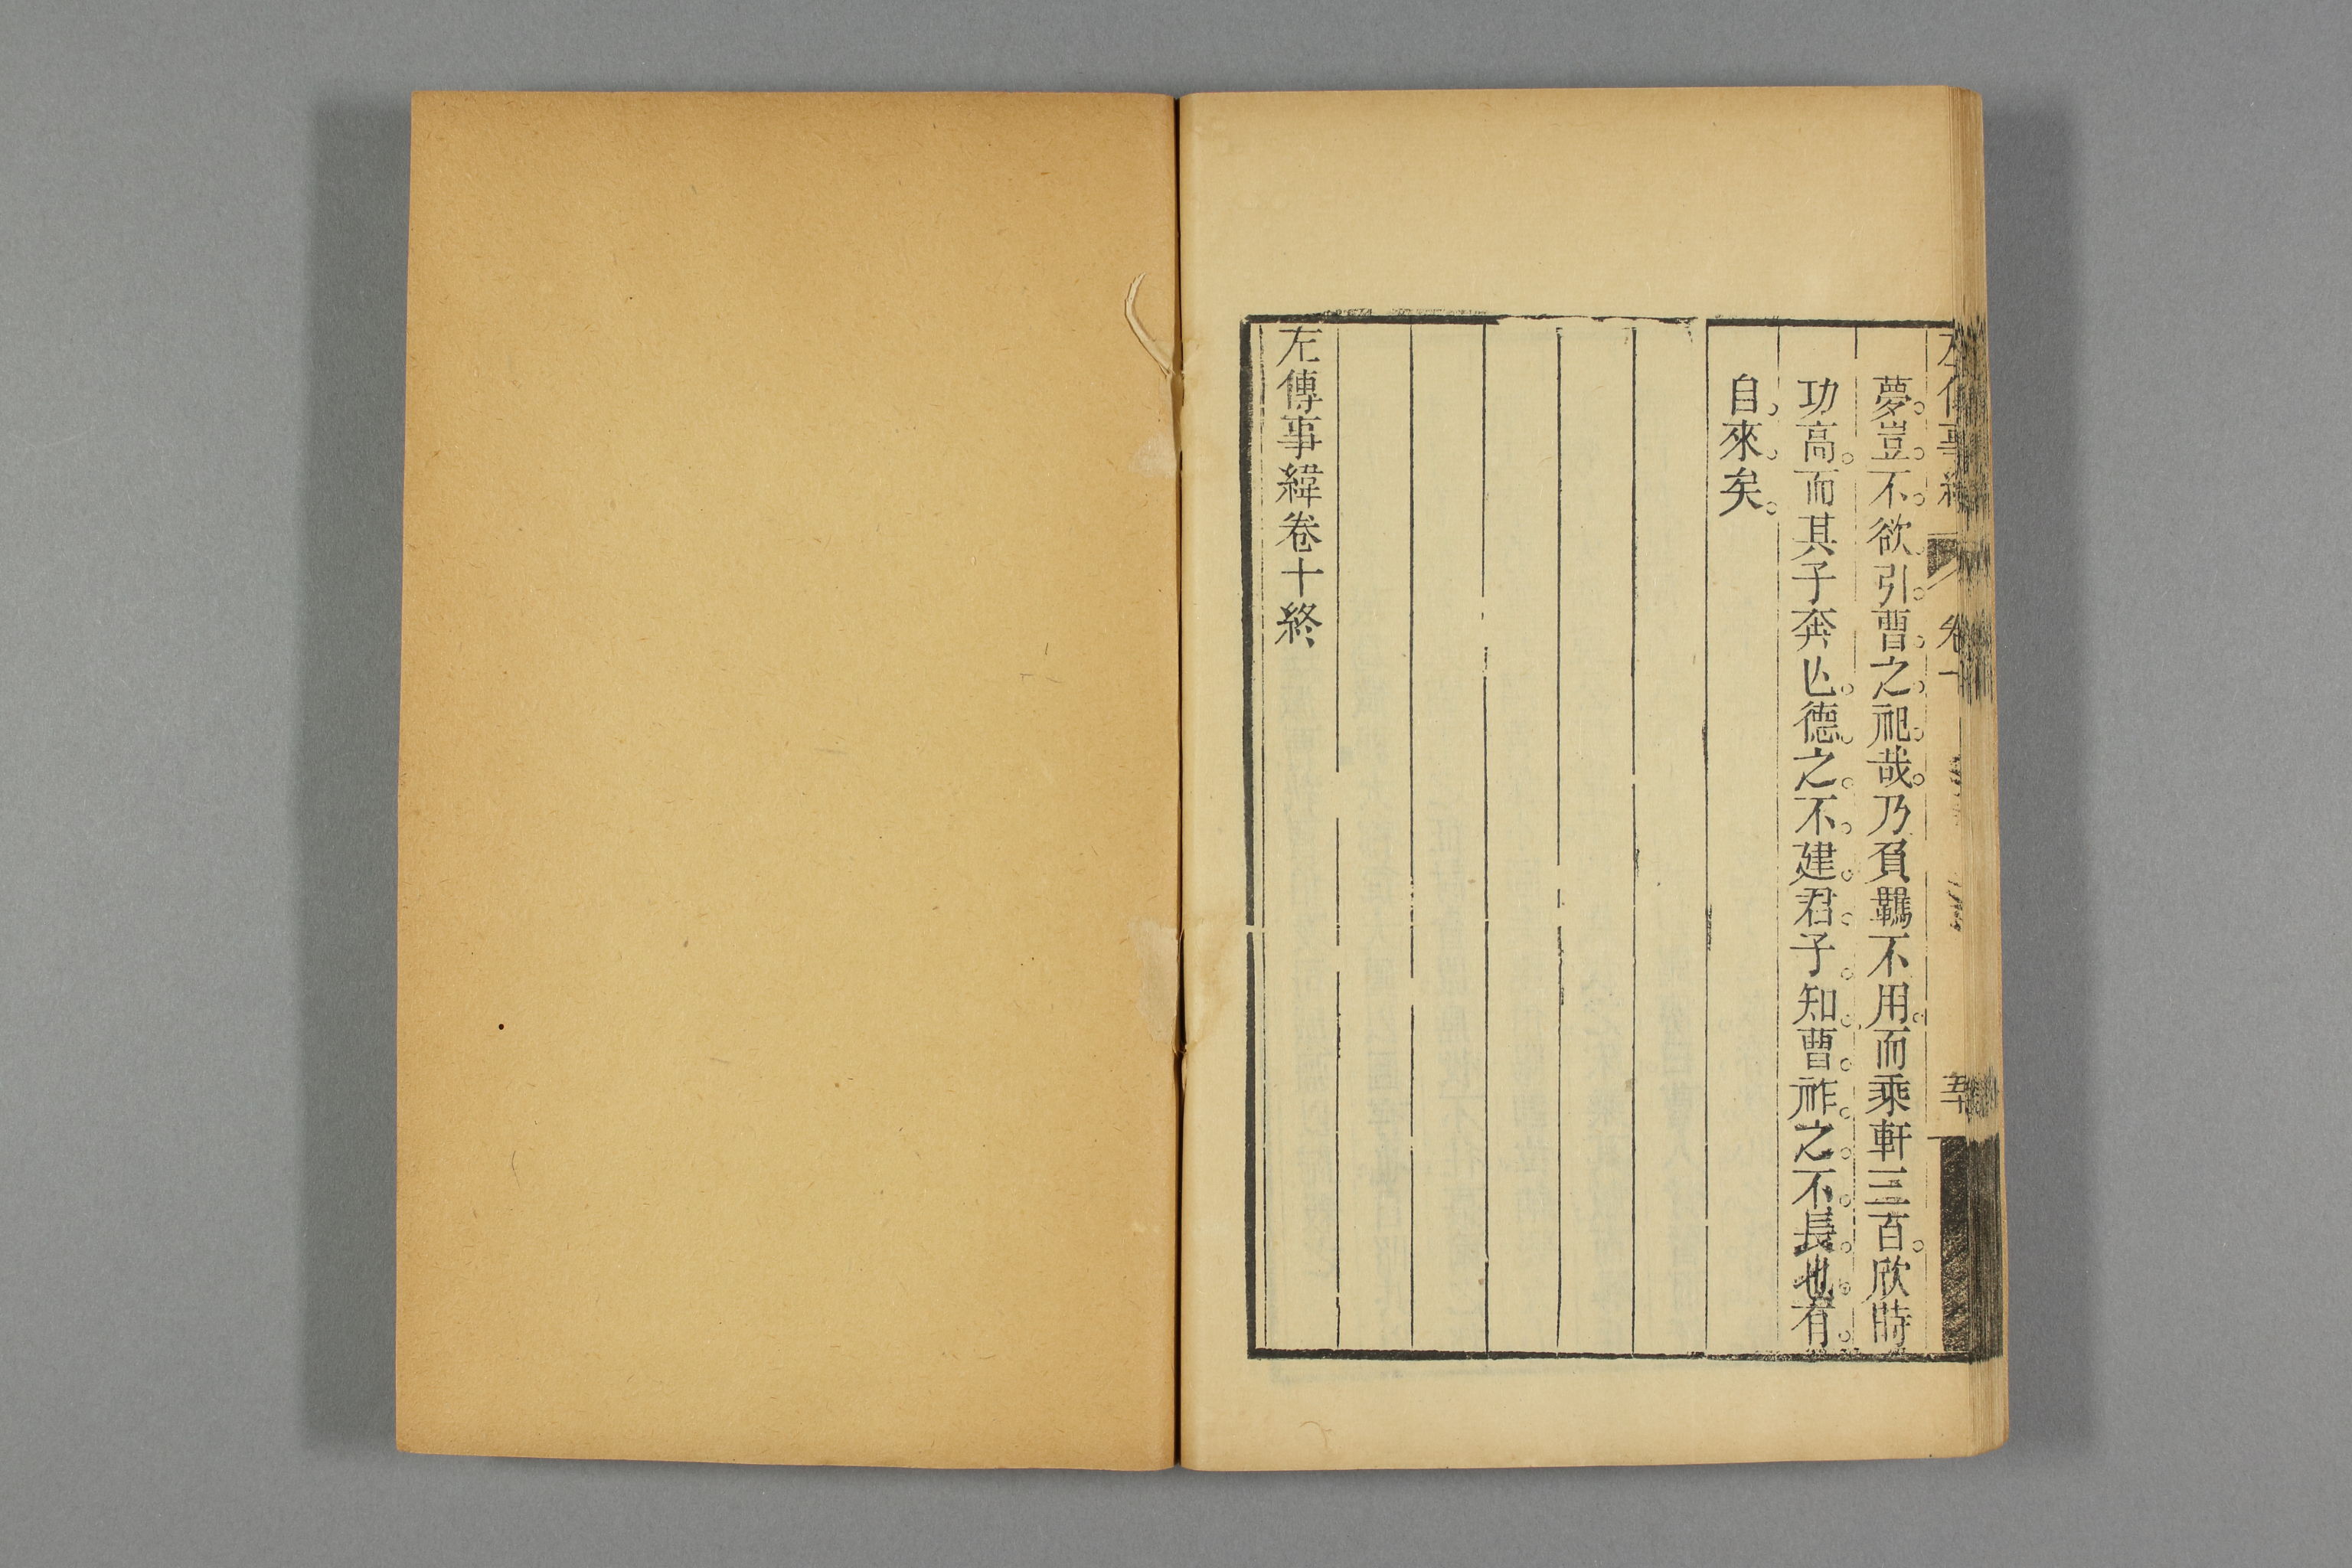 夢豈不欲引曹之祀哉乃負羈不用而乘軒三百欣時
功高而其子奔亾德之不建君子知曹祚之不長也有
自來矣
左傳事緯卷十終